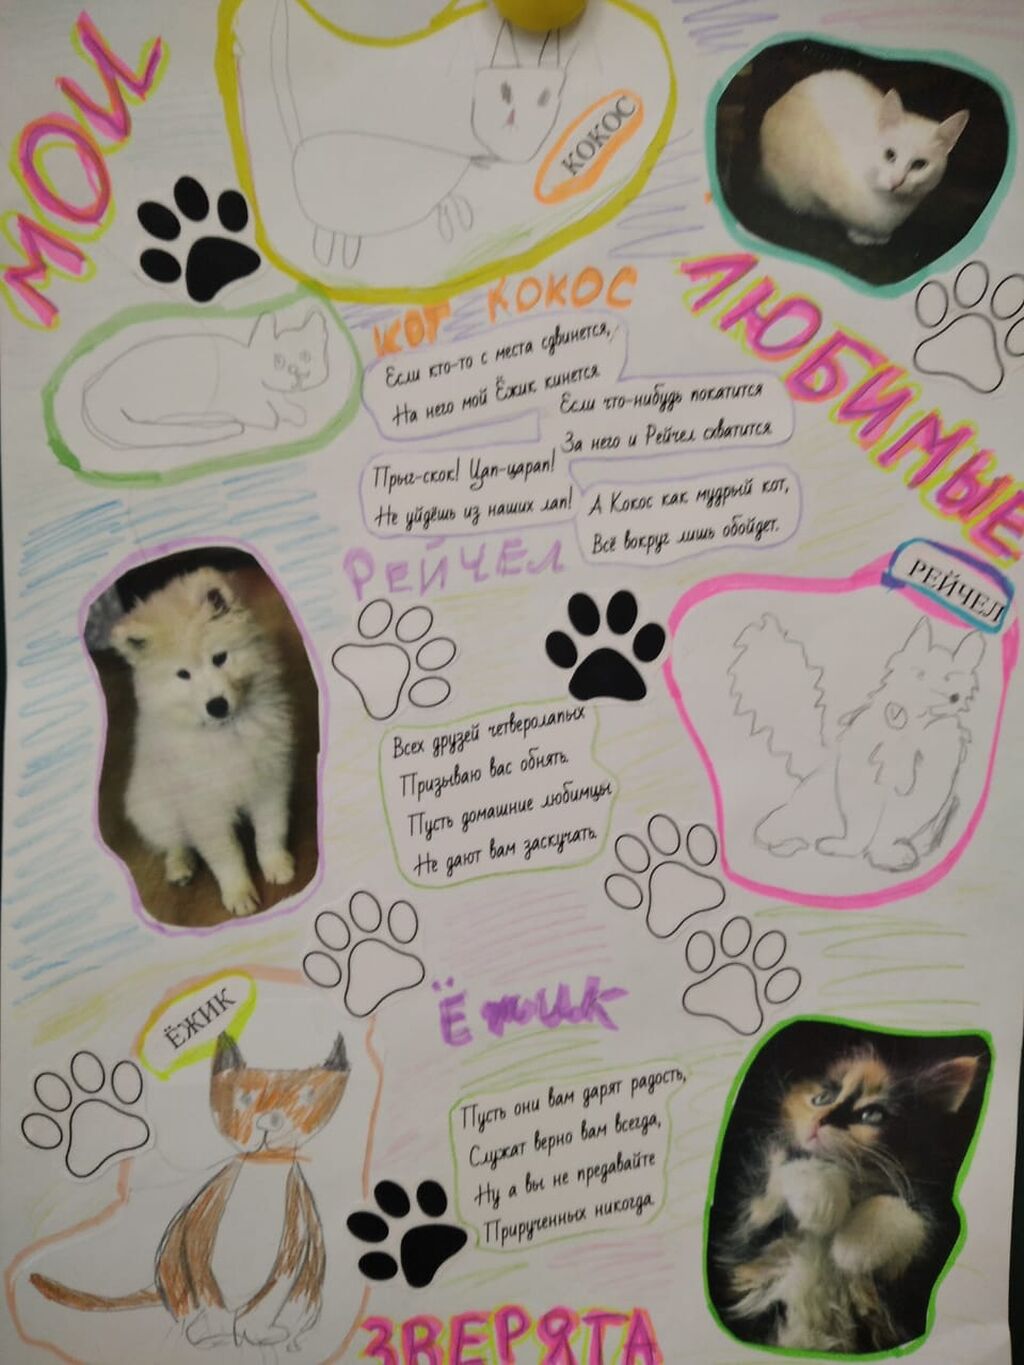 МОИ
КОКОС
ЛЮБИМЫЕ
КОТ КОКОС
Если кто-то с места сдвинется,
На него мой Ёжик кинется
Если что-нибудь покатится
За него и Рейчел схватится
Прыг-скок! Цап-царап!
Не уйдёшь из наших лап!
А Кокос как мудрый кот,
Всё вокруг лишь обойдет.
РЕЙЧЕЛ
РЕЙЧЕЛ
Всех друзей четверолапых
Призываю вас обнять.
Пусть домашние любимцы
Не дают вам заскучать.
ЁЖИК
Ёжик
Пусть они вам дарят радость,
Служат верно вам всегда,
Ну а вы не предавайте
Прирученных никогда
ЗВЕРЯТА